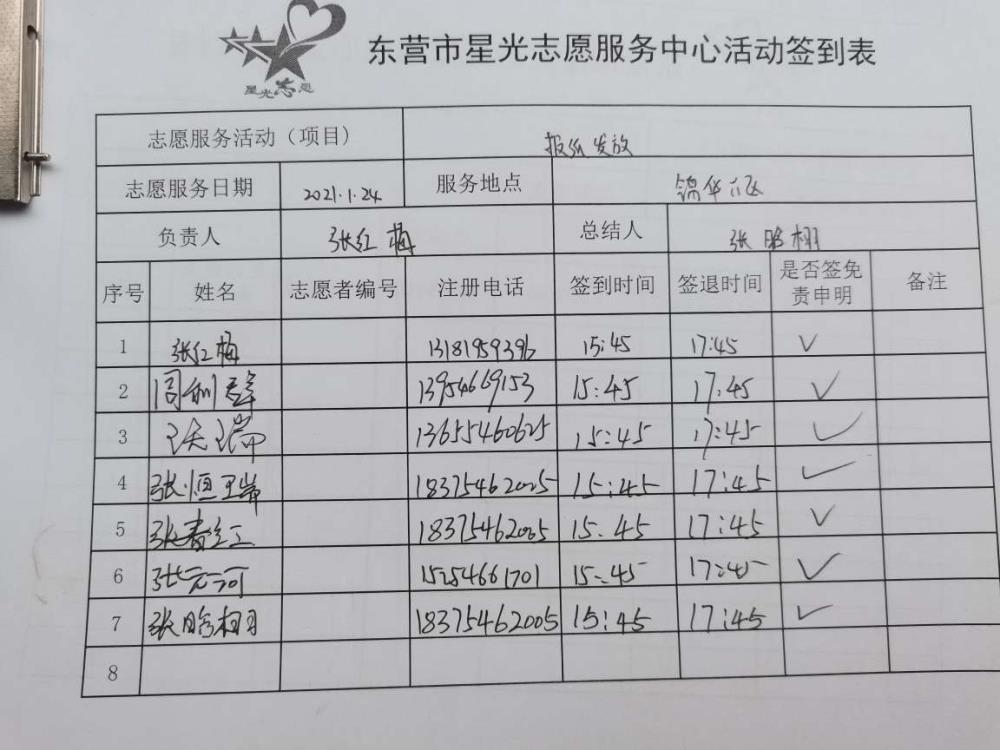 星光志愿
东营市星光志愿服务中心活动签到表
志愿服务活动（项目） 报纸发放
志愿服务日期 2021.1.24 服务地点 锦华六区
负责人 张红梅 总结人 张
序号 姓名 志愿者编号 注册电话 签到时间 签退时间 是否签免责申明 备注
1 张红梅 13181959396 15:45 17:45 ✓
2 周利群 13954669153 15:45 17:45 ✓
3 13655460625 15:45 17:45 ✓
4 张恒 18375462005 15:45 17:45 ✓
5 张春红 18375462005 15:45 17:45 ✓
6 张元河 15254661701 15:45 17:45 ✓
7 张 18375462005 15:45 17:45 ✓
8